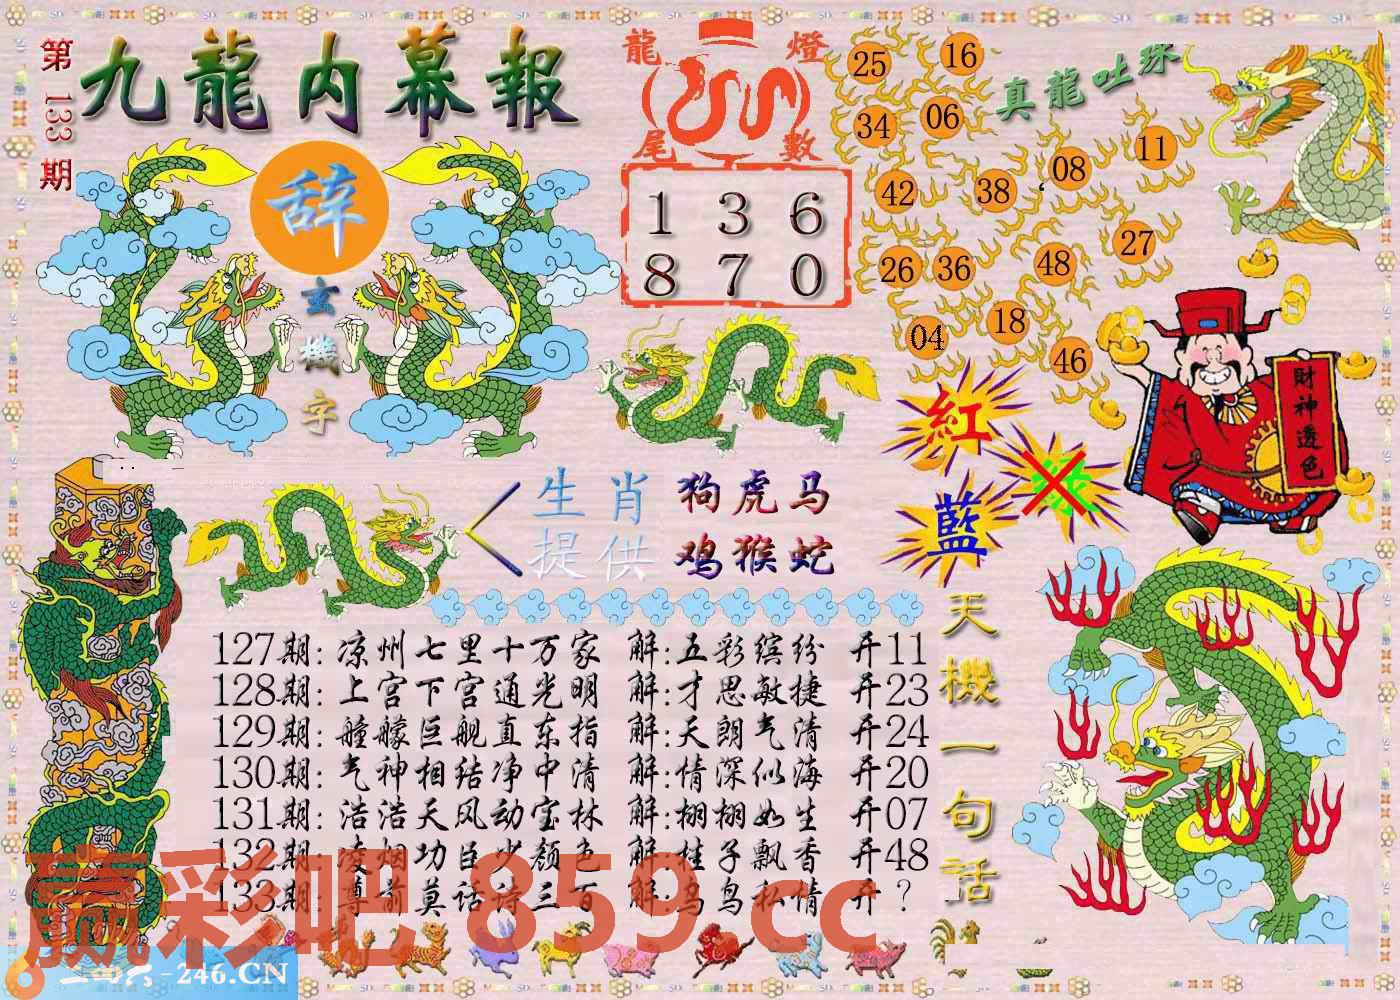 第133期
九龍内幕報
辞
玄機字
龍燈
尾數
1 3 6
8 7 0
真龍吐珠
25 16
34 06
42 38 08 11
26 36 48 27
04 18 46
財神透色
紅
藍
生肖 狗虎马
提供 鸡猴蛇
天機一句話
127期:凉州七里十万家 解:五彩缤纷 开11
128期:上宫下宫通光明 解:才思敏捷 开23
129期:艟艨巨舰直东指 解:天朗气清 开24
130期:气神相结净中清 解:情深似海 开20
131期:浩浩天风动宝林 解:栩栩如生 开07
132期:凌烟功臣少颜色 解:桂子飘香 开48
133期:尊前莫话诗三百 解:乌鸟私情 开?
赢彩吧 859.cc
-246.CN